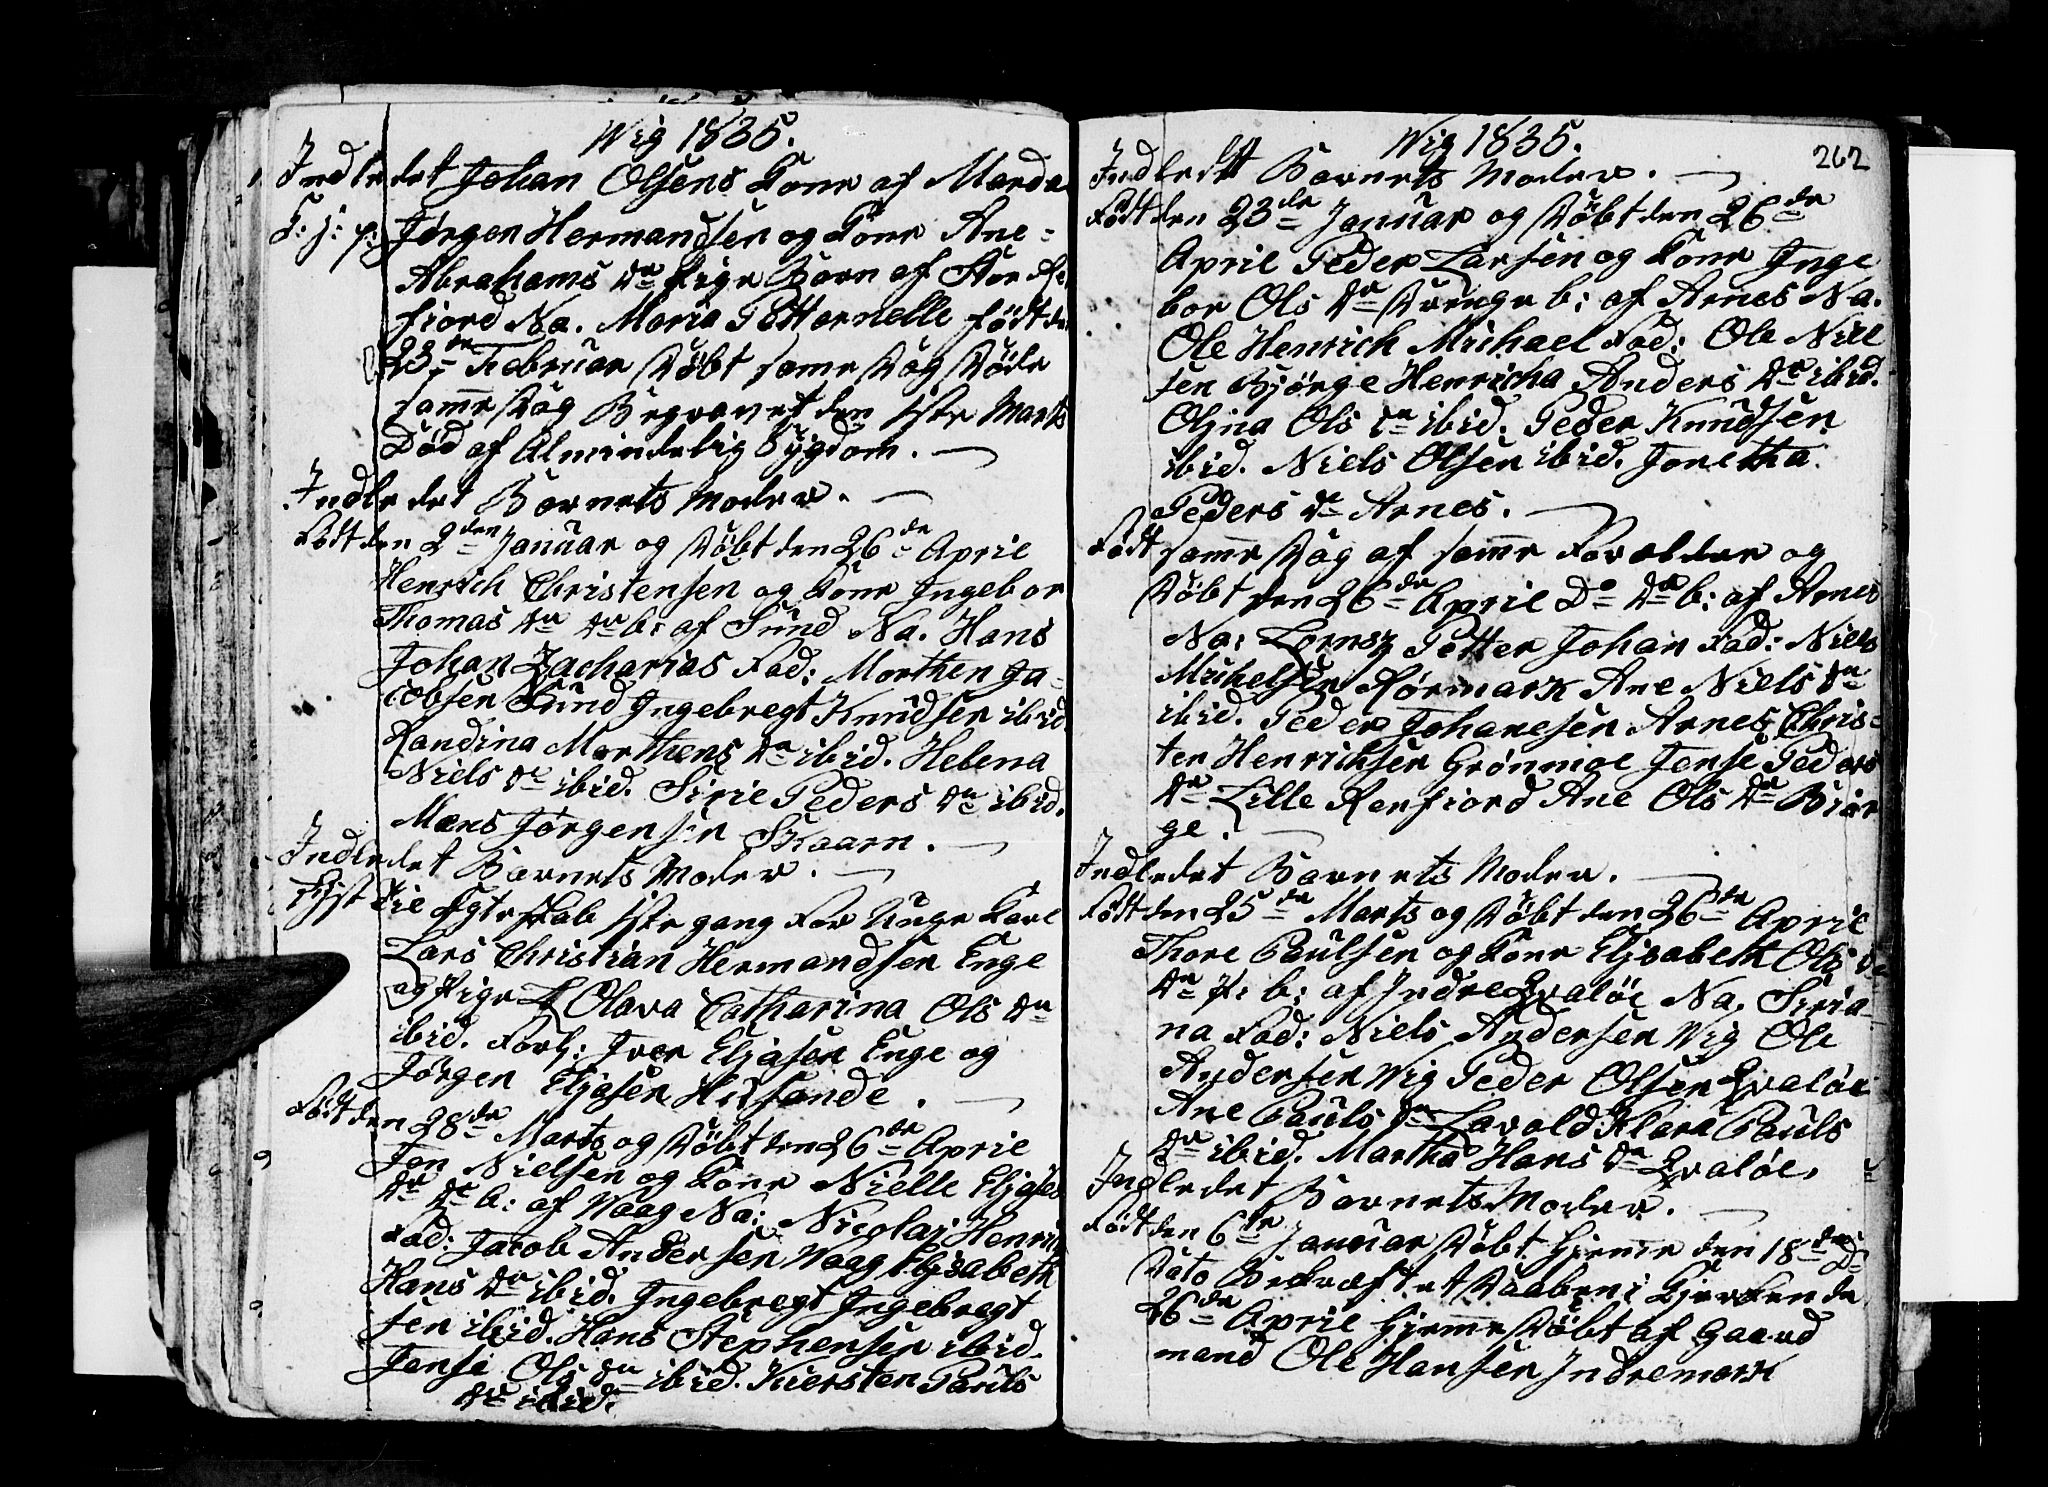 Wig 1835.
Indledet Johan Olsens Kone af Marda
F: j: p: Jørgen Hermandsen og Kone Ane
Abrahams dr Pige Barn af Stor Re
fiord Na. Maria Pettornelle født den
23de Februar Døbt same Dag Døde
same Dag Begravet den 1ste Marts
Død af Almindelig Sygdom.
Indledet Barnets Moder.
Født den 2den Januar og Døbt den 26de April
Henrich Christensen og Kone Ingebor
Thomas dr dr b: af Sund Na. Hans
Johan Zacharias Fad: Morthen Ja-
cobsen Sund Ingebregt Knudsen ibid.
Randina Morthens dr ibid. Helena
Niels dr ibid. Sirie Peders dr ibid.
Mons Jørgensen Skaarn.
Indledet Barnets Moder.
Lyst til Egteskab 1ste gang For Unge Karl
Lars Christian Hermandsen Enge
og Pige Olava Catharina Ols dr
ibid. Forl: Iver Eljasen Enge og
Jørgen Eljasen Husande.
Født den 28de Marts og Døbt den 26de April
Jon Nielsen og Kone Nielle Eljases
dr dr b: af Waag Na: Nicolaj Henrich
Fad: Jacob Andersen Waag Elisabeth
Hans dr ibid. Ingebregt Ingebregt
sen ibid. Hans Stephensen ibid.
Jense Ols dr ibid. Kiersten Pauls
dr ibid.
Wig 1835.
262
Indledt Barnets Moder.
Født den 23de Januar og Døbt den 26de
April Peder Larsen og Kone Inge
bor Ols dr Drenge b: af Arnes Na.
Ole Henrich Michael Fad: Ole Niel
sen Bjørge Henricha Anders dr ibid.
Oljna Ols dr ibid. Peder Knudsen
ibid. Niels Olsen ibid. Jonetha
Peders dr Arnes.
Født same Dag af same Forældre og
Døbt den 26de April Do dr b: af Arnes
Na: Lornsz Petter Johan Fad: Niels
Michelsen Rørmark Ane Niels dr
ibid. Peder Johanesen Arnes Chris-
ten Henriksen Grønmoe Jense Peders
dr Lille Renfiord Ane Ols dr Biør
ge.
Indledet Barnets Moder.
Født den 25de Marts og Døbt den 26de April
Thore Paulsen og Kone Eljsabeth Ols
dr P: b: af Indre Qvaløe Na. Siria
na Fad: Niels Andersen Wig Ole
Andersen Wig Peder Olsen Qvaløe
Ane Pauls dr Lavold Klara Pauls
dr ibid. Martha Hans dr Qvaløe.
Indledet Barnets Moder.
Født den 6te Januar Døbt Hjeme den 18de D:
Dato Bekræftet Daaben i Kjerken de
26de April Hjeme Døbt af Gaard
mand Ole Hansen Indremark